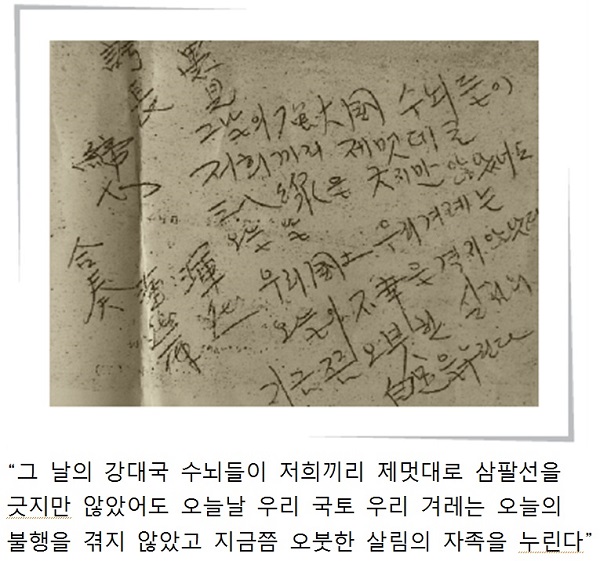 異見
그날의 强大國 수뇌들이
저희끼리 제멋데로
三八線은 긋지만 않았어도
오늘날
우리 國土 우리겨레는
오늘의 不幸은 격지않았고
지금쯤 오붓한 살림의
自足을 누린다
長
合奏
“그 날의 강대국 수뇌들이 저희끼리 제멋대로 삼팔선을
긋지만 않았어도 오늘날 우리 국토 우리 겨레는 오늘의
불행을 겪지 않았고 지금쯤 오붓한 살림의 자족을 누린다”